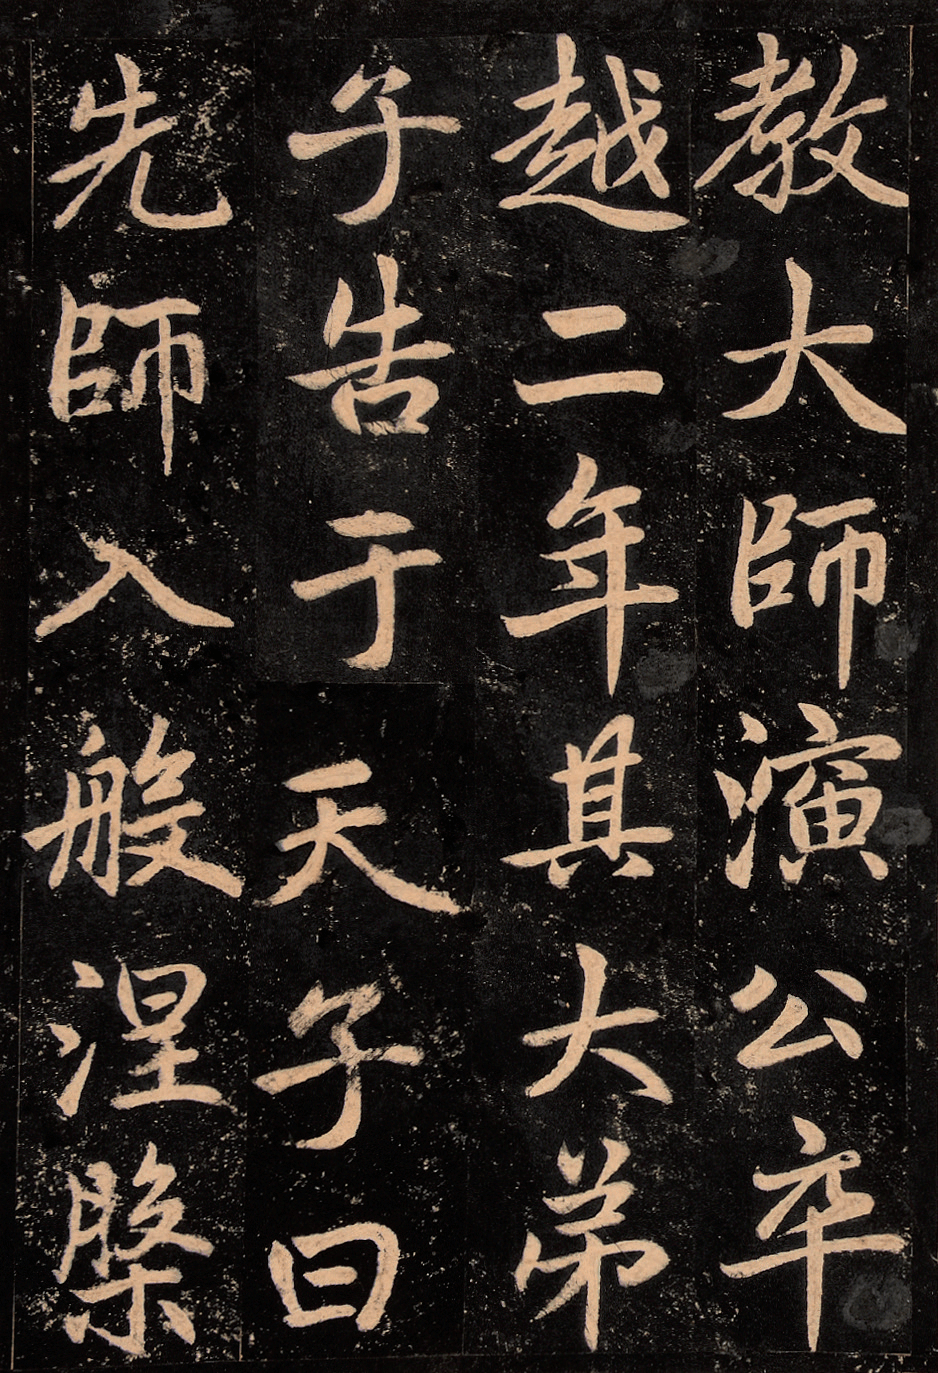 教大師演公卒
越二年其大弟
子告于天子曰
先師入般涅槃